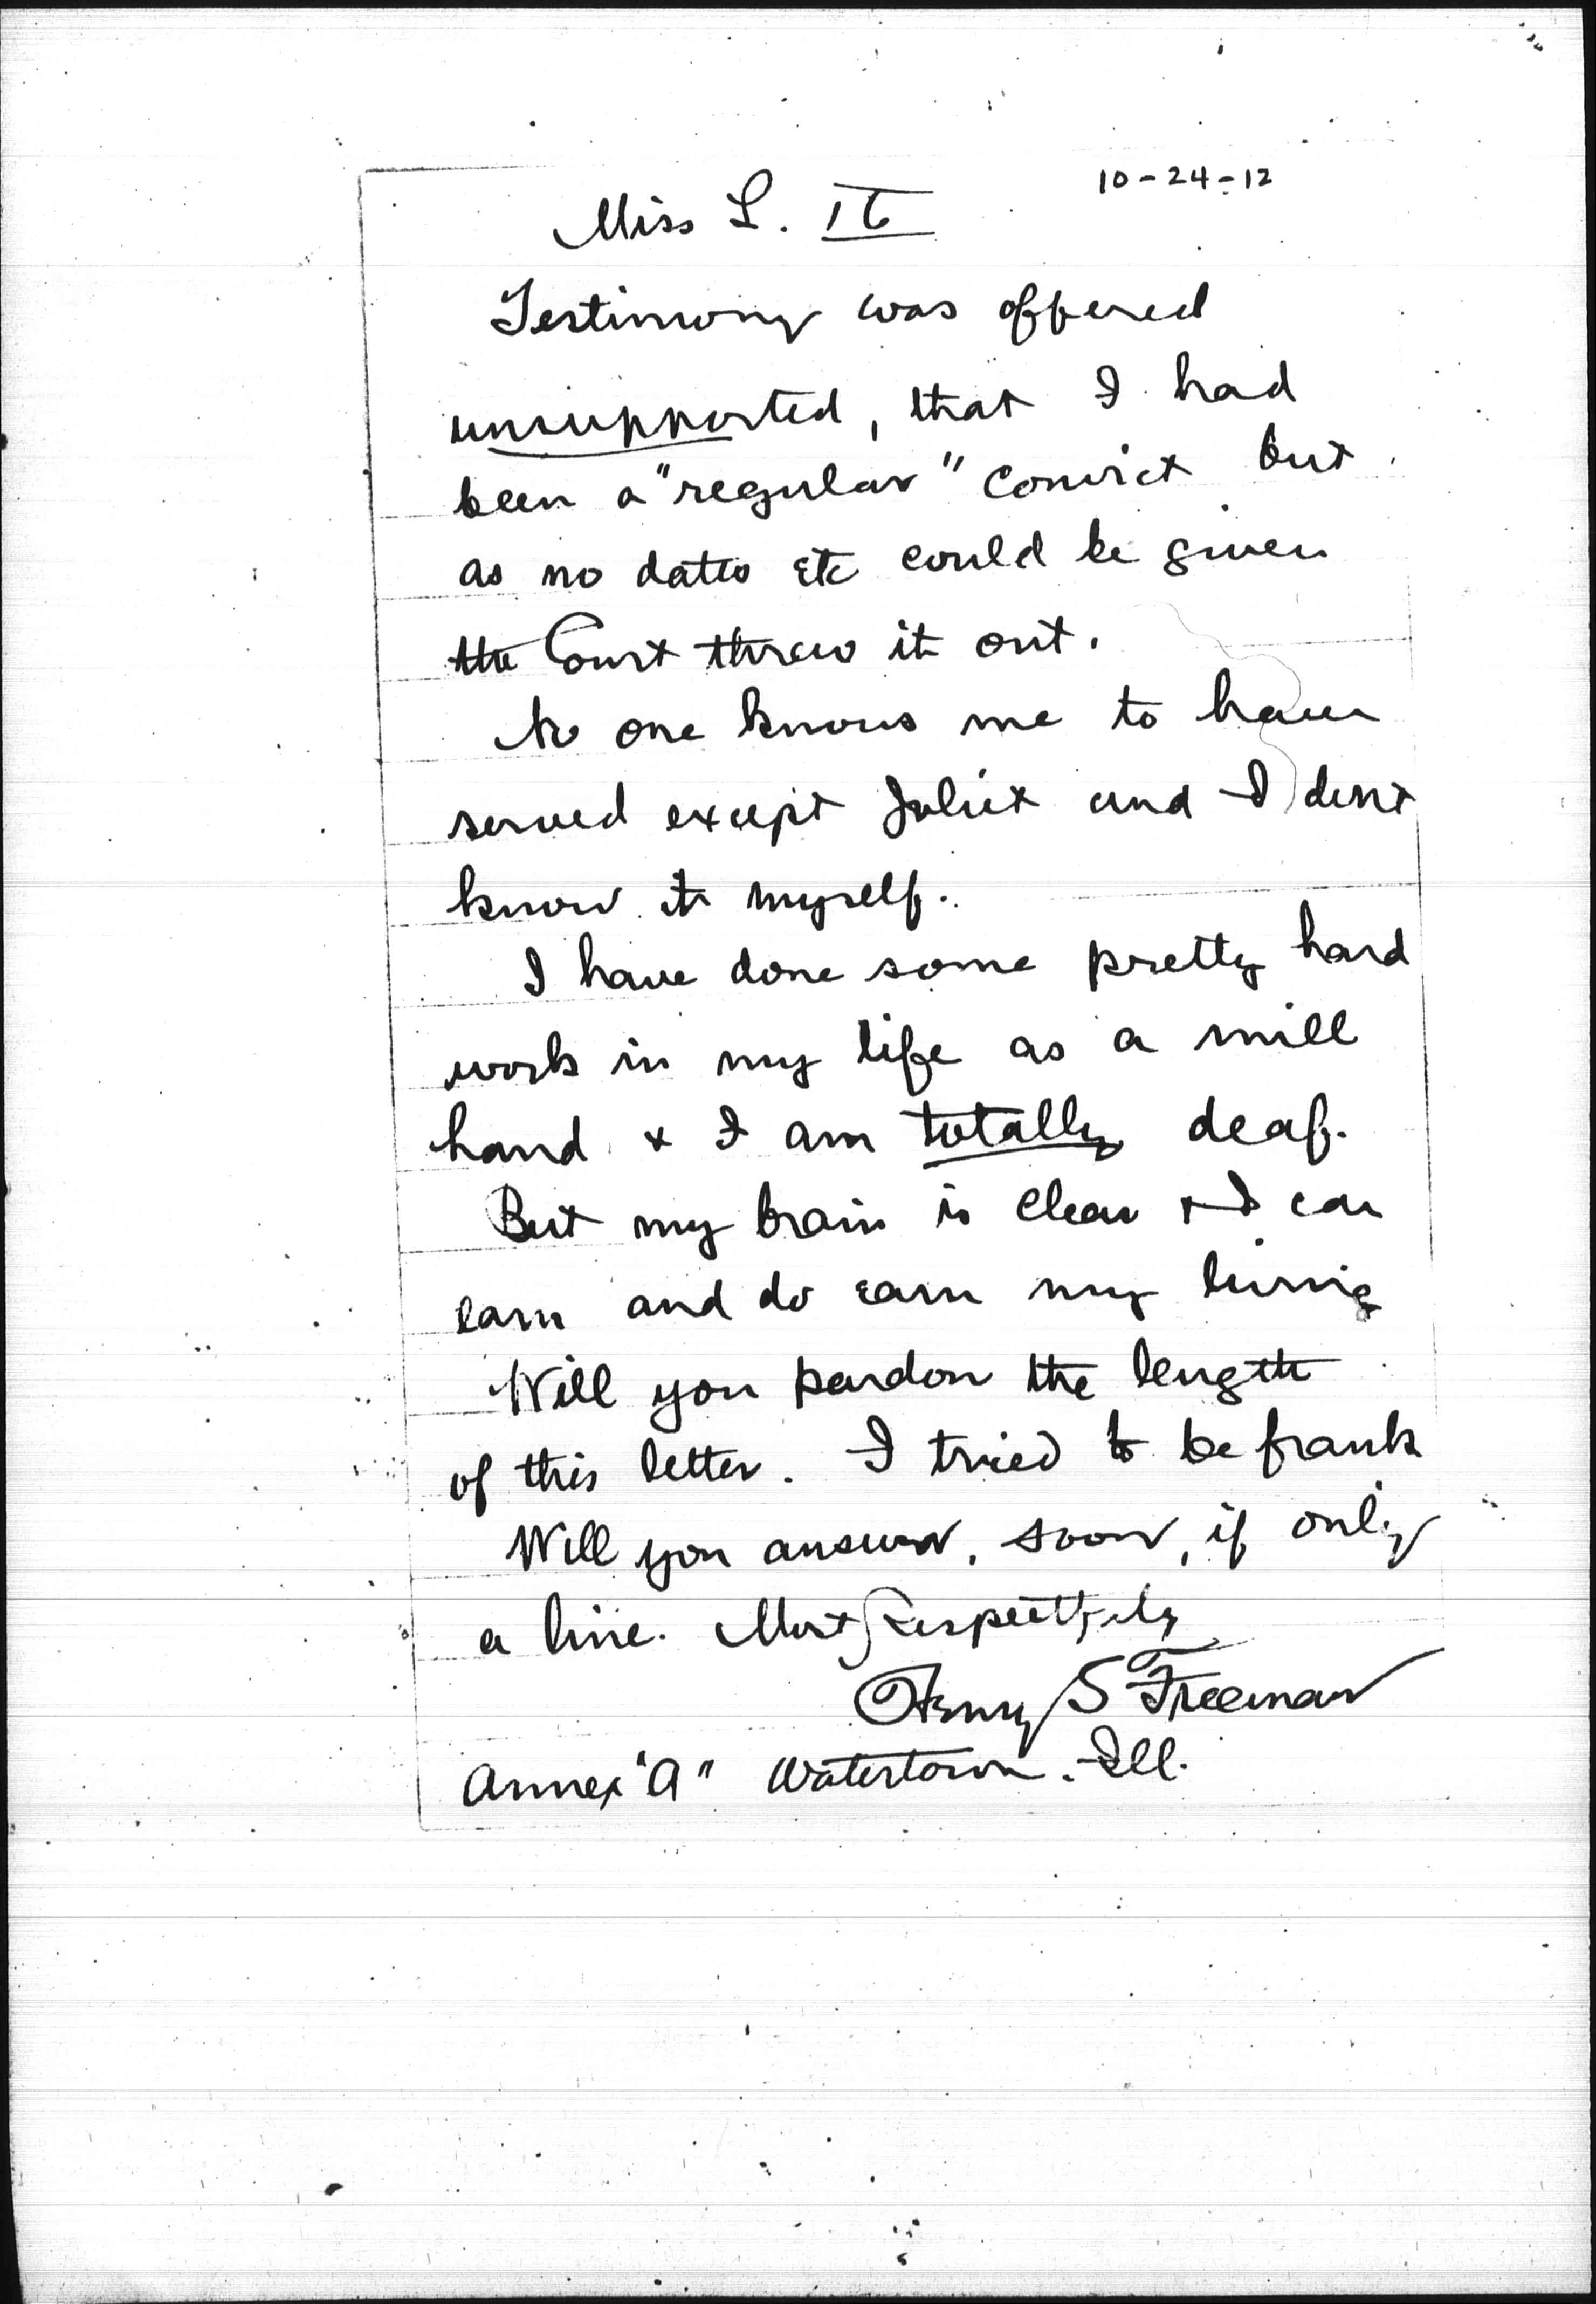 10-24-12
Miss L.
Testimony was offered
unsupported, that I had
been a "regular" convict but
as no dates etc could be given
the Court threw it out.
No one knows me to have
served except Joliet and I dont
know it myself.
I have done some pretty hard
work in my life as a mill
hand & I am totally deaf.
But my brain is clear & I can
earn and do earn my living
Will you pardon the length
of this letter. I tried to be frank
Will you answer, soon, if only
a line. Most Respectfully
Henry S Freeman
Annex "A" Watertown. Ill.